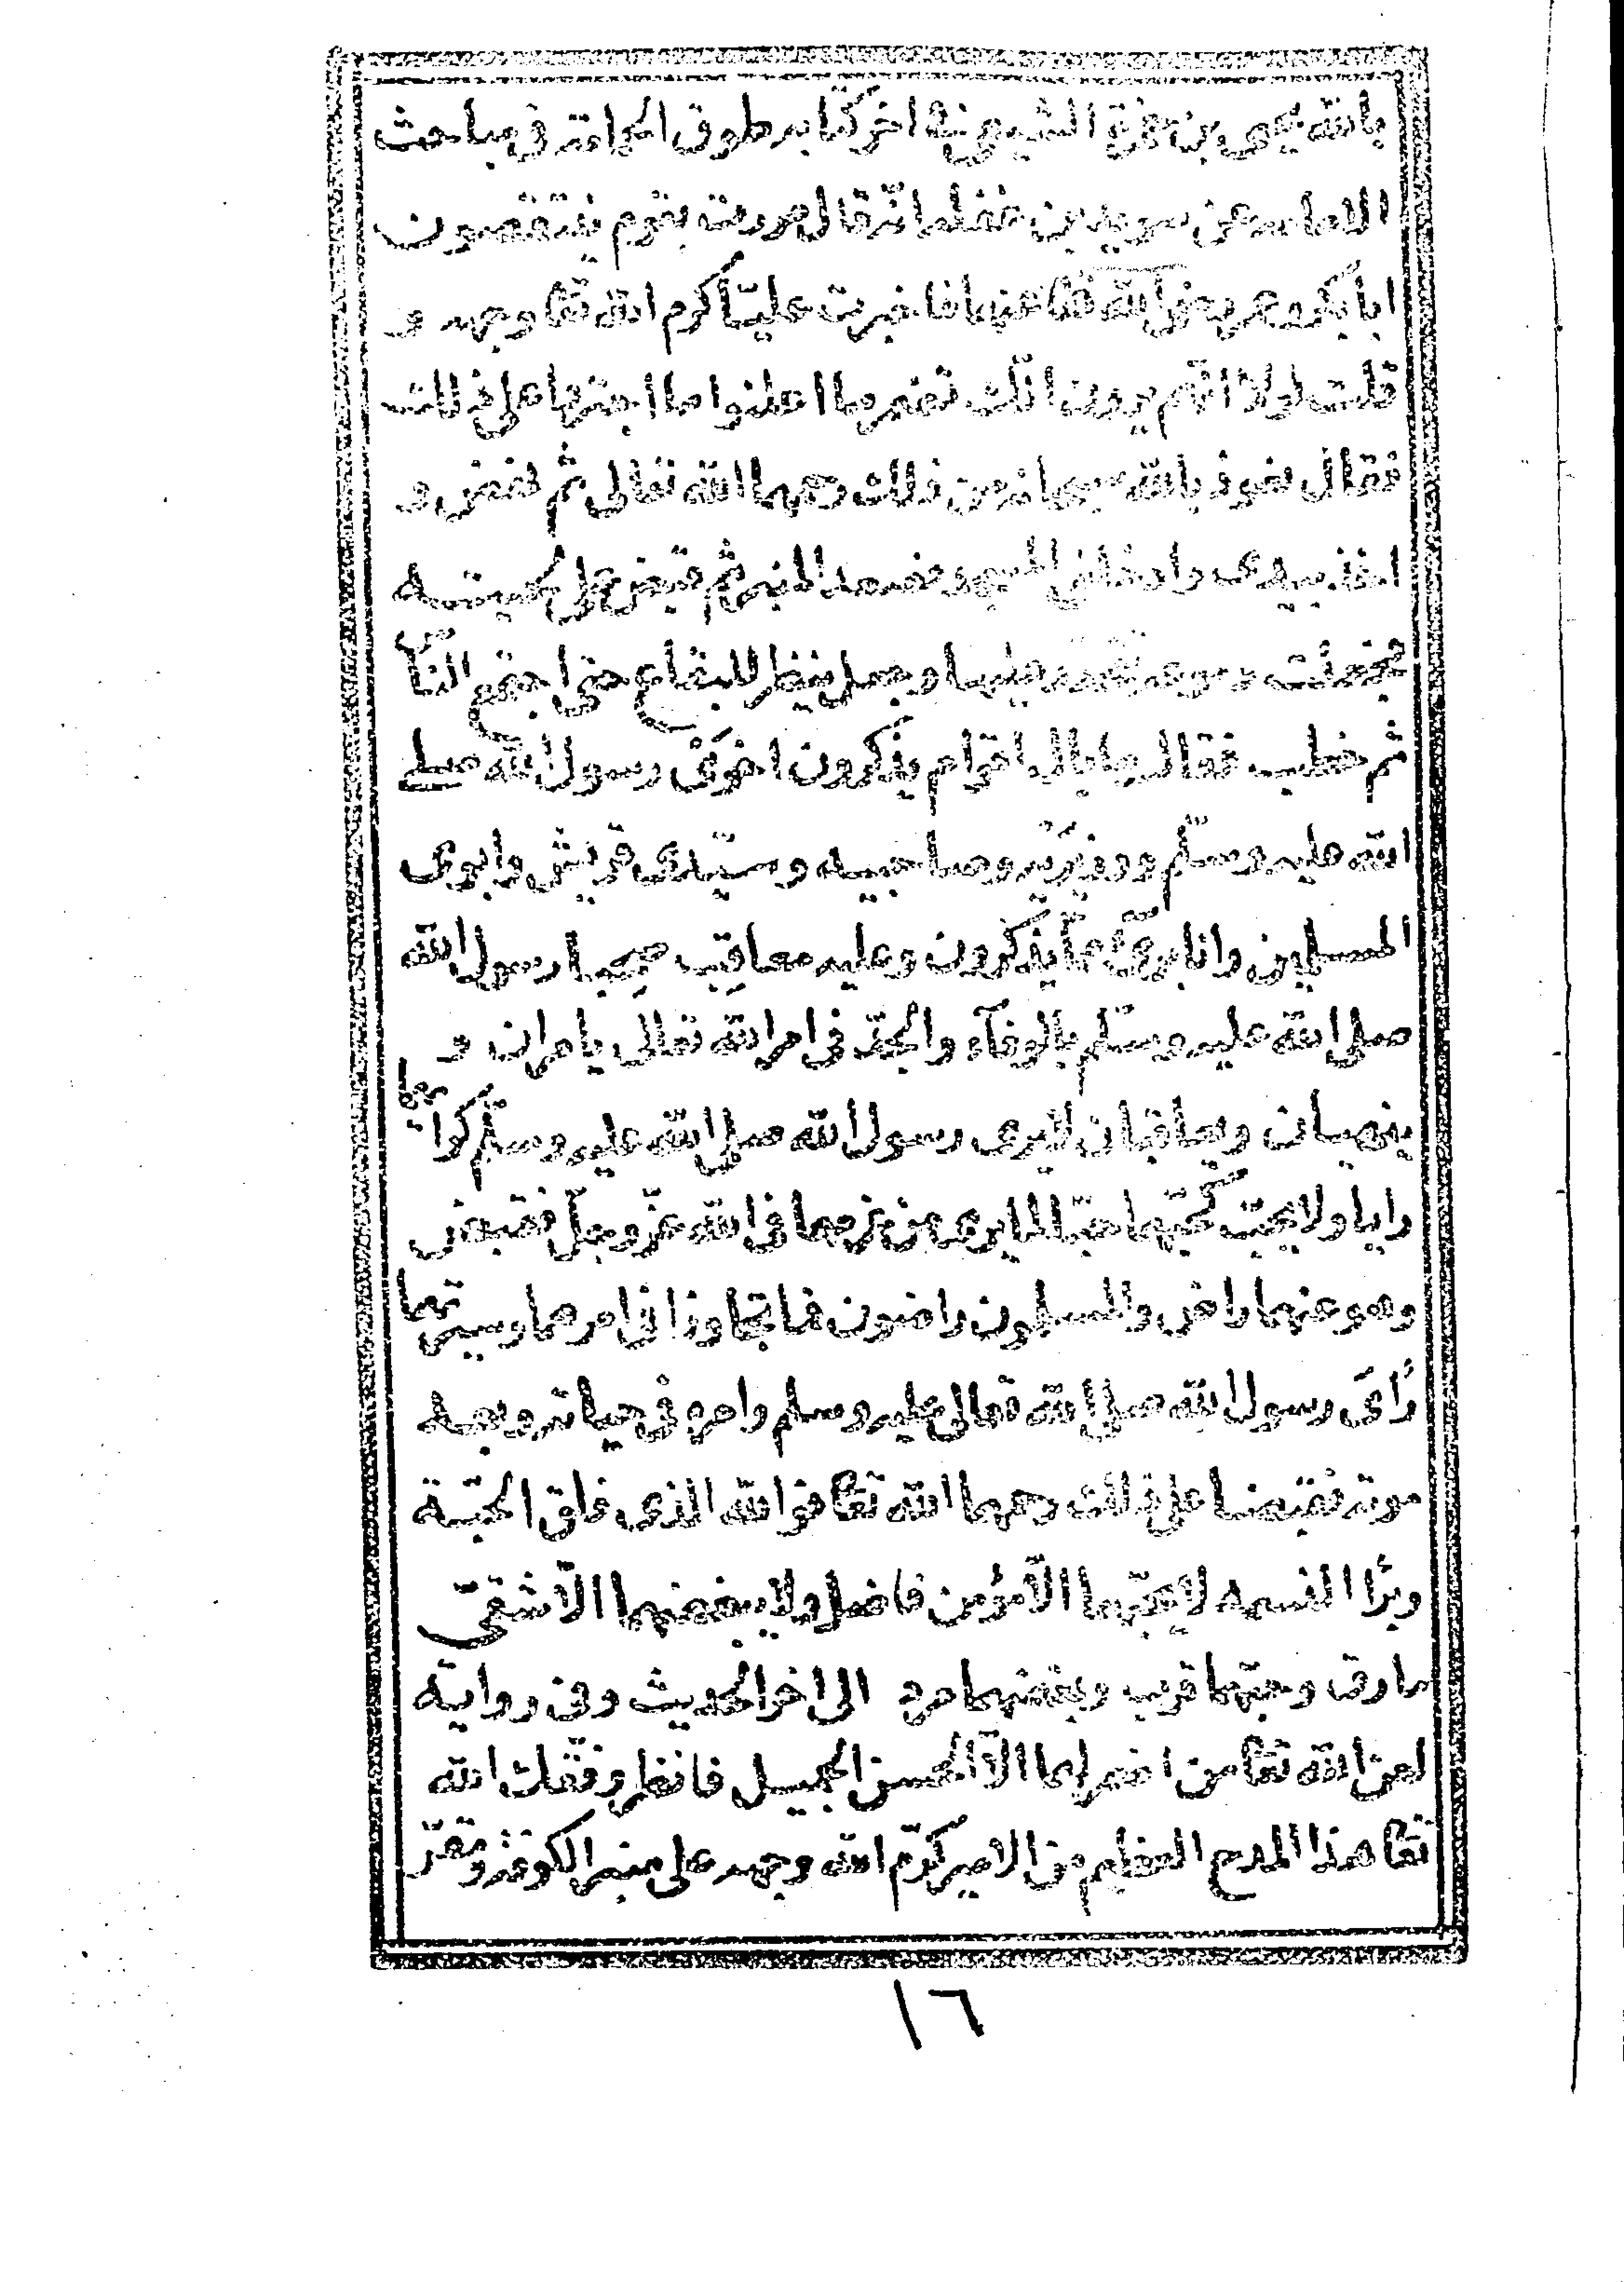 بالله يحيى بن حمزة الشيعى فى اخر كتابه طوق الحمامة فى مباحث
الامامه عن سويد بن غفله انه قال مررت بقوم ينتقصون
ابا بكر وعمر رضى الله تعا عنهما فاخبرت عليّا كرم الله تعا وجهه و
قلت لولا انّهم يرون انّك تضمر ما اعلنوا ما اجترؤا على ذلك
فقال نعوذ بالله سبحانه من ذلك رحمهما الله تعالى ثم نهض و
اخذ بيدى وادخلنى المسجد فصعد المنبر ثم قبض على لحيته
فجعلت دموعه تتحدر عليها وجعل ينظر للبقاع حتى اجتمع النّاس
ثم خطب فقال ما بال اقوام يذكرون اخوىّ رسول الله صلى
الله عليه وسلّم ووزيريه وصاحبيه وسيّدى قريش وابوى
المسلمين وانا برئ ممّا يذكرون وعليه معاقب صحبا رسول الله
صلى الله عليه وسلّم بالوفآء والجدّ فى امر الله تعالى يامران و
ينهيان ويعاقبان لايرى رسول الله صلى الله عليه وسلّم كرايهما
رايا ولا يحبّ كحبّهما حبّا لما يرى من عزمهما فى الله عزّ وجلّ فقبض
وهو عنهما راض والمسلمون راضون فما تجاوزا فى امرهما وسيرتهما
رأى رسول الله صلى الله تعالى عليه وسلم وامره فى حياته وبعد
موته فقبضا على ذلك رحمهما الله تعا فو الله الذى فلق الحبّة
وبرأ النسمه لا يحبّهما الاّ مؤمن فاضل ولا يبغضهما الاّ شقىّ
مارق وحبّهما قرب وبغضهما مرد الى اخر الحديث وفى رواية
لعن الله تعا من اضمر لهما الاّ الحسن الجميل فانظر وفّقك الله
تعا هذا المدح العظيم من الامير كرّم الله وجهه على منبر الكوفة ومقرّ
١٦